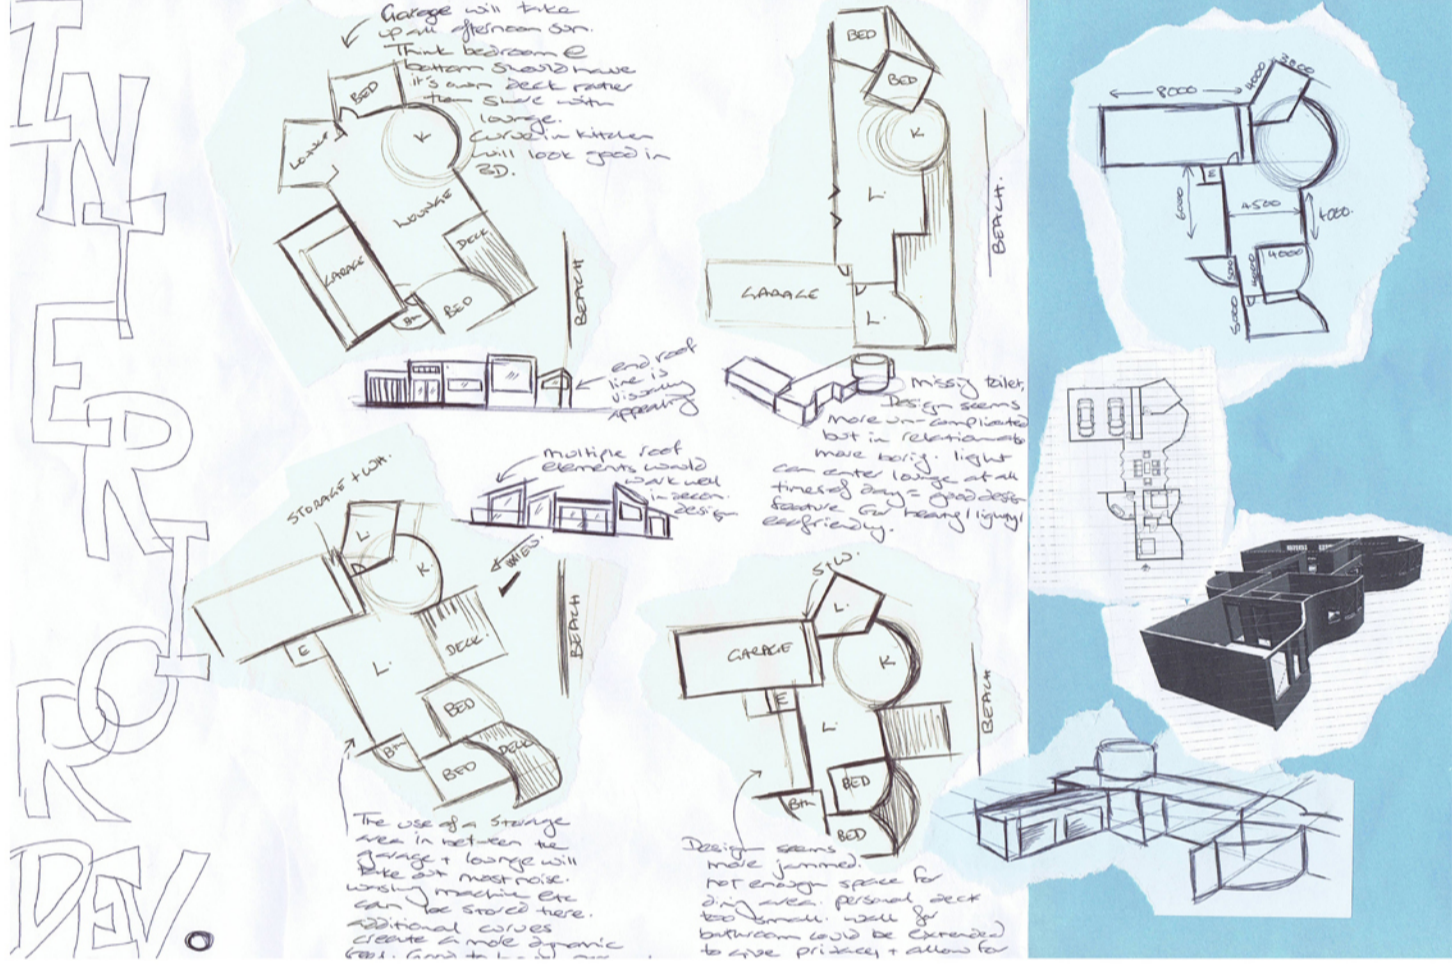 INTERIOR
DEV.
Garage will take
up all afternoon sun.
Think bedroom @
bottom should have
it's own deck rather
than share with
lounge.
Curve in kitchen
will look good in
3D.
BED
K
LOUNGE
LOUNGE
DECK
GARAGE
Bth
BED
BEACH
end roof
line is
visually
appealing
BED
BED
K
L.
GARAGE
L.
BEACH.
missig toilet.
Design seems
more un-complicated
but in relation
more boring. light
can enter lounge at all
times of day = good design
feature for heating/lighting/
ecofriendly.
multiple roof
elements would
work well
in
design
STORAGE + WM.
L.
K
E
L.
DECK.
VIEW.
BEACH
BED
Bth
BED
DECK
The use of a storage
area in between the
garage + lounge will
take out most noise.
wasing machine etc
can be stored there.
additional curves
create a more dynamic
feel. Good to
S+W.
L.
GARAGE
K
E
L.
BEACH
BED
Bth
BED
Design seems
more jammed.
not enough space for
dinig area. personal deck
too small. wall for
bathroom could be extended
to give privacy + allow for
8000
4000
3800
E
6000
4500
4000.
4000
5000